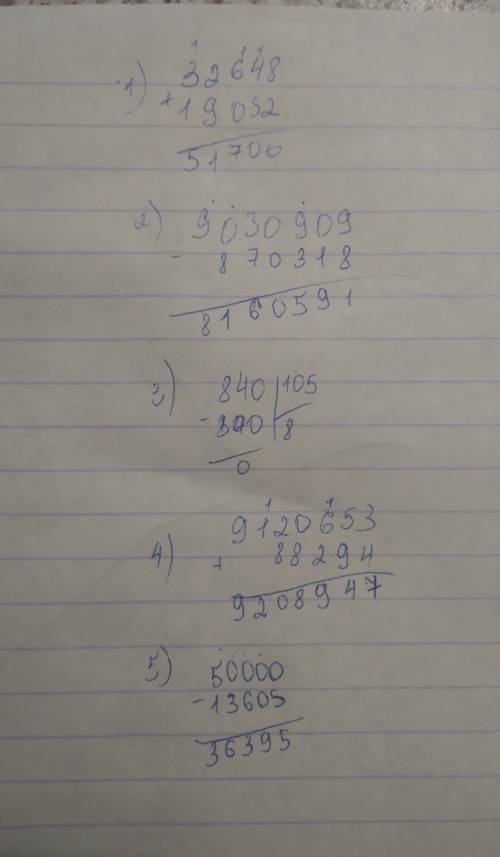 1) 32648
+ 19052
51700
2) 9030909
- 870318
8160591
3) 840 | 105
- 840 | 8
0
4) 9120653
+ 88294
9208947
5) 50000
- 13605
36395